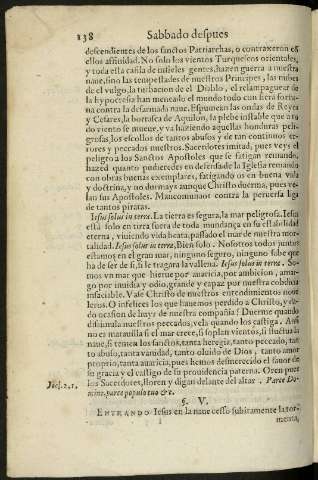 138 Sabbado despues
descendientes de los sanctos Patriarchas, o contraxeron cõ
ellos affinidad. No solo los vientos Turquescos orientales,
y toda esta casta de infieles gentes, hazen guerra a nuestra
naue, sino las tempestades de nuestros Principes, las nubes
de el vulgo, la turbacion de el Diablo, el relampaguear de
la hypocresia han meneado el mundo todo con fiera fortu-
na contra la desarmada naue. Espumean las ondas de Reyes
y Cesares, la borrasca de Aquilon, la plebe instable que a to
do viento se mueue, y va haziendo aquellas honduras peli-
grosas, los escollos de tantos abusos y de tan continuos er-
rores y peccados nuestros. Sacerdotes imitad, pues veys el
peligro a los Sanctos Apostoles que se fatigan remando,
hazed quanto pudieredes en defensa de la Iglesia remando
con obras buenas exemplares, fatigando os en buena vida
y doctrina, y no durmays aunque Christo duerma, pues ve-
lan sus Apostoles. Mancomunaos contra la peruersa liga
de tantos piratas.
Iesus solus in terra. La tierra es segura, la mar peligrosa. Iesus
está solo en tierra fuera de toda mundança en su estabilidad
eterna, viuiendo vida beata, passado el mar de nuestra mor-
talidad. Iesus solus in terra, Bien solo. Nosotros todos juntos
estamos en el gran mar, ninguno seguro, ninguno sabe que
ha de ser de si, si le tragara la vallena. Iesus solus in terra. So-
mos vn mar que hierue por auaricia, por ambicion, amar-
go por inuidia y odio, grande y capaz por nuestra cobdicia
insaciable. Vase Christo de nuestros entendimientos noue-
leros. O infelices los que hauemos perdido a Christo, y da-
do ocasion de huyr de nuestra compañia! Duerme quando
dissimula nuestros peccados, vela quando los castiga. Assi
no es marauilla si el mar crece, si soplan vientos, si fluctua la
naue, si temen los sanctos, tanta heregia, tanto peccado, tan
to abuso, tanta vanidad, tanto oluido de Dios, tanto amor
proprio, tanta auaricia, pues hemos desmerecido el fauor de
su gracia y el castigo de su prouidencia paterna. Oren pues
Ioel. 2. 1. los Sacerdotes, lloren y digan delante del altar. Parce Do-
mine, parce populo tuo &c.
§. V.
ENTRANDO Iesus en la naue cesso subitamente la tor-
menta,